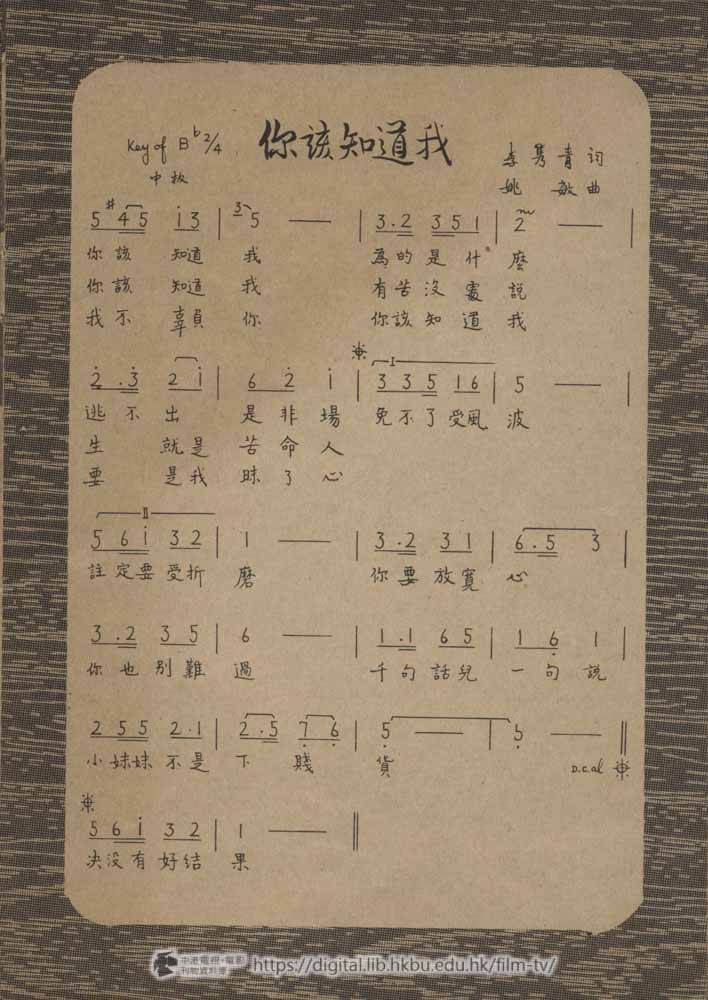 你該知道我
Key of B♭ 2/4
中板
李雋青 詞
姚敏 曲
5 #4 5 i 3 | 3 5 — | 3 . 2 3 5 1 | 2 — |
你該 知道 我 為的是什 麼
你該 知道 我 有苦沒處 說
我不 辜負 你 你該知道 我
2 . 3 2 i | 6 2 i | 3 3 5 1 6 | 5 — |
I
逃不出 是非場 免不了受風 波
生 就是 苦命人
要 是我 昧了心
II
5 6 i 3 2 | 1 — | 3 . 2 3 1 | 6 . 5 3 |
註定要受折 磨 你要放寬 心
3 . 2 3 5 | 6 — | 1 . 1 6 5 | 1 6 1 |
你也別難 過 千句話兒 一句說
2 5 5 2 . 1 | 2 . 5 7 6 | 5 — | 5 — ‖
小妹妹不是 下 賤 貨
D.C. al ※
※
5 6 i 3 2 | 1 — ‖
决没有好结 果
中港電視·電影
刊物資料庫
https://digital.lib.hkbu.edu.hk/film-tv/